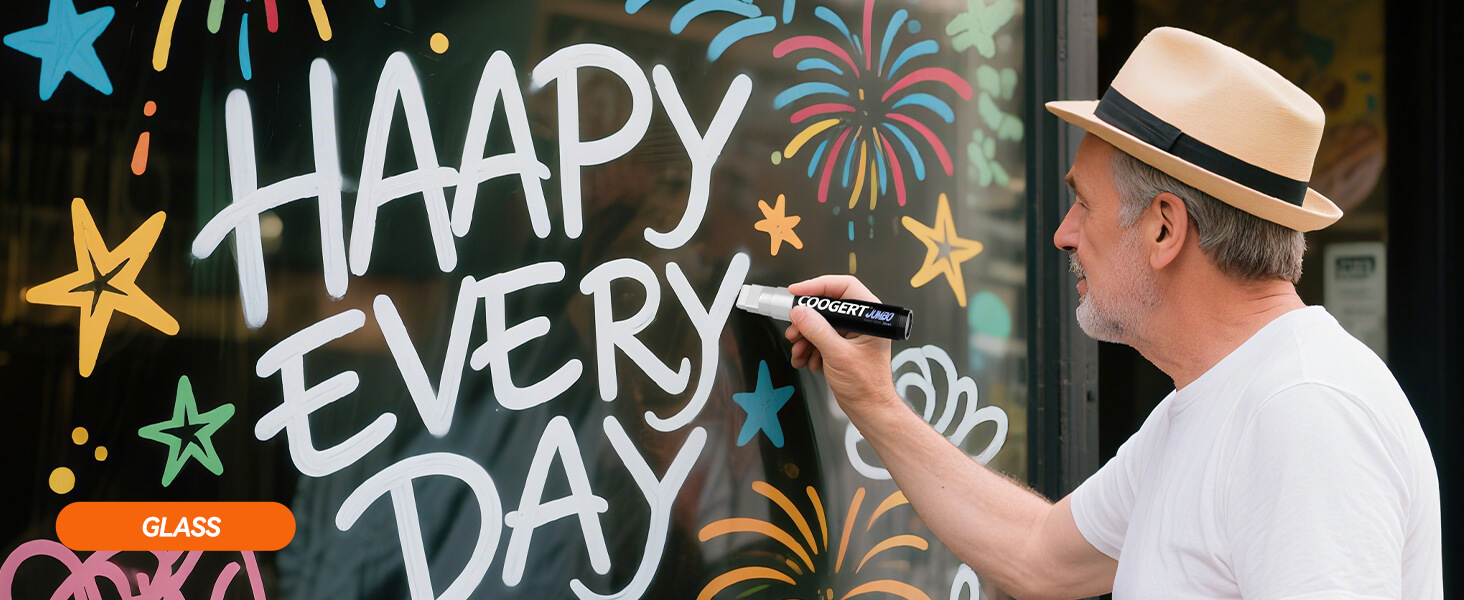 HAAPY
EVERY
DAY
COOGERT JUMBO
GLASS